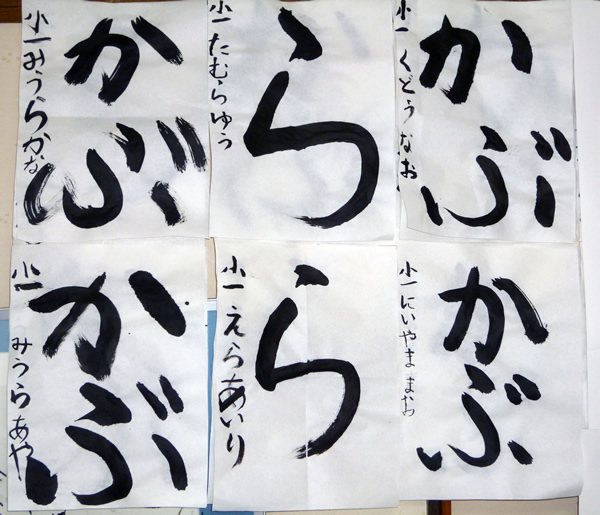 かぶ
小一 みうらかな
ら
小一 たむらゆう
かぶ
小一 くどうなお
かぶ
小一 みうらあや
ら
小一 えらあいり
かぶ
小一 にいやままお